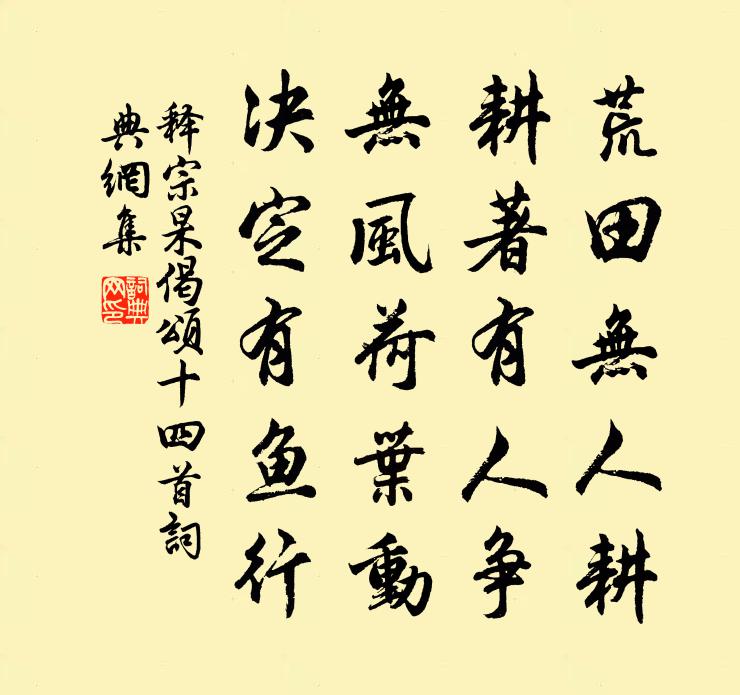 荒田無人耕
耕著有人争
無風荷葉動
决定有鱼行
释宗杲偈頌十四首詞
典網集
詞典网印